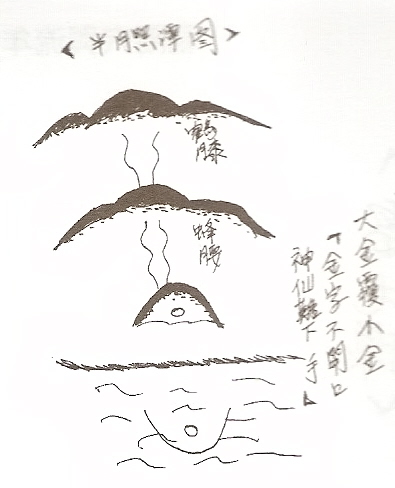 <半月照潭图>
鶴膝
蜂腰
大金覆小金
「金字不開口
神仙難下手」